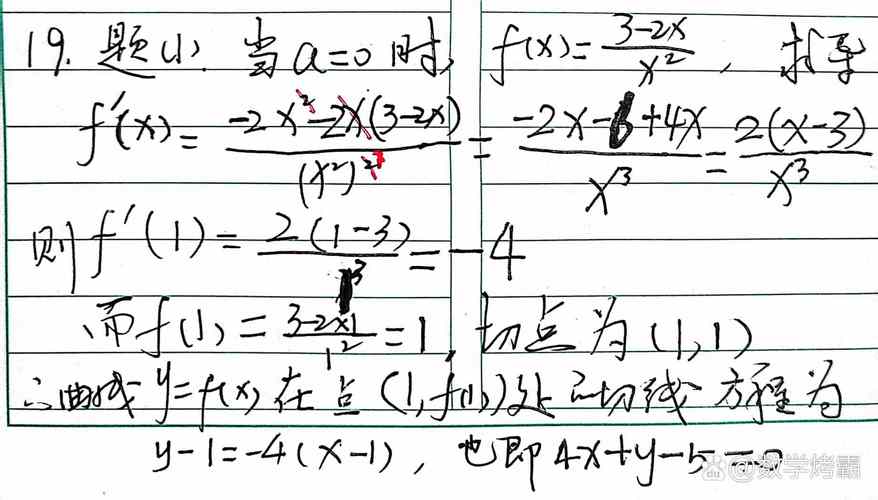 19. 题(1). 当a=0时, f(x)=\frac{3-2x}{x^2}, 求导
f'(x)=\frac{-2x^2-2x(3-2x)}{(x^2)^2}=\frac{-2x-6+4x}{x^3}=\frac{2(x-3)}{x^3}
则f'(1)=\frac{2(1-3)}{1^3}=-4
而f(1)=\frac{3-2×1}{1^2}=1, 切点为(1,1)
∴曲线y=f(x)在点(1,f(1))处的切线方程为
y-1=-4(x-1), 也即4x+y-5=0
@数学烤霸